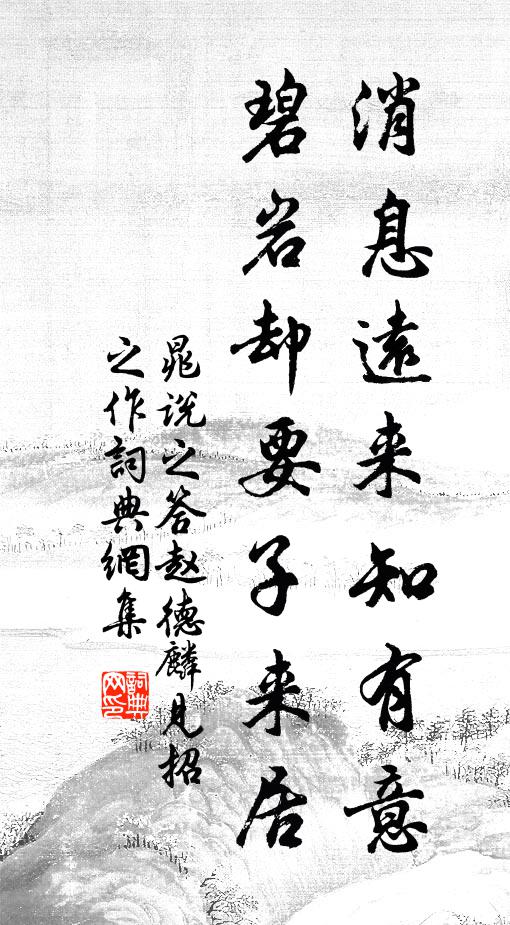 消息遠来知有意
碧岩却要子来居
晁说之答赵德麟見招
之作詞典網集
詞典网印